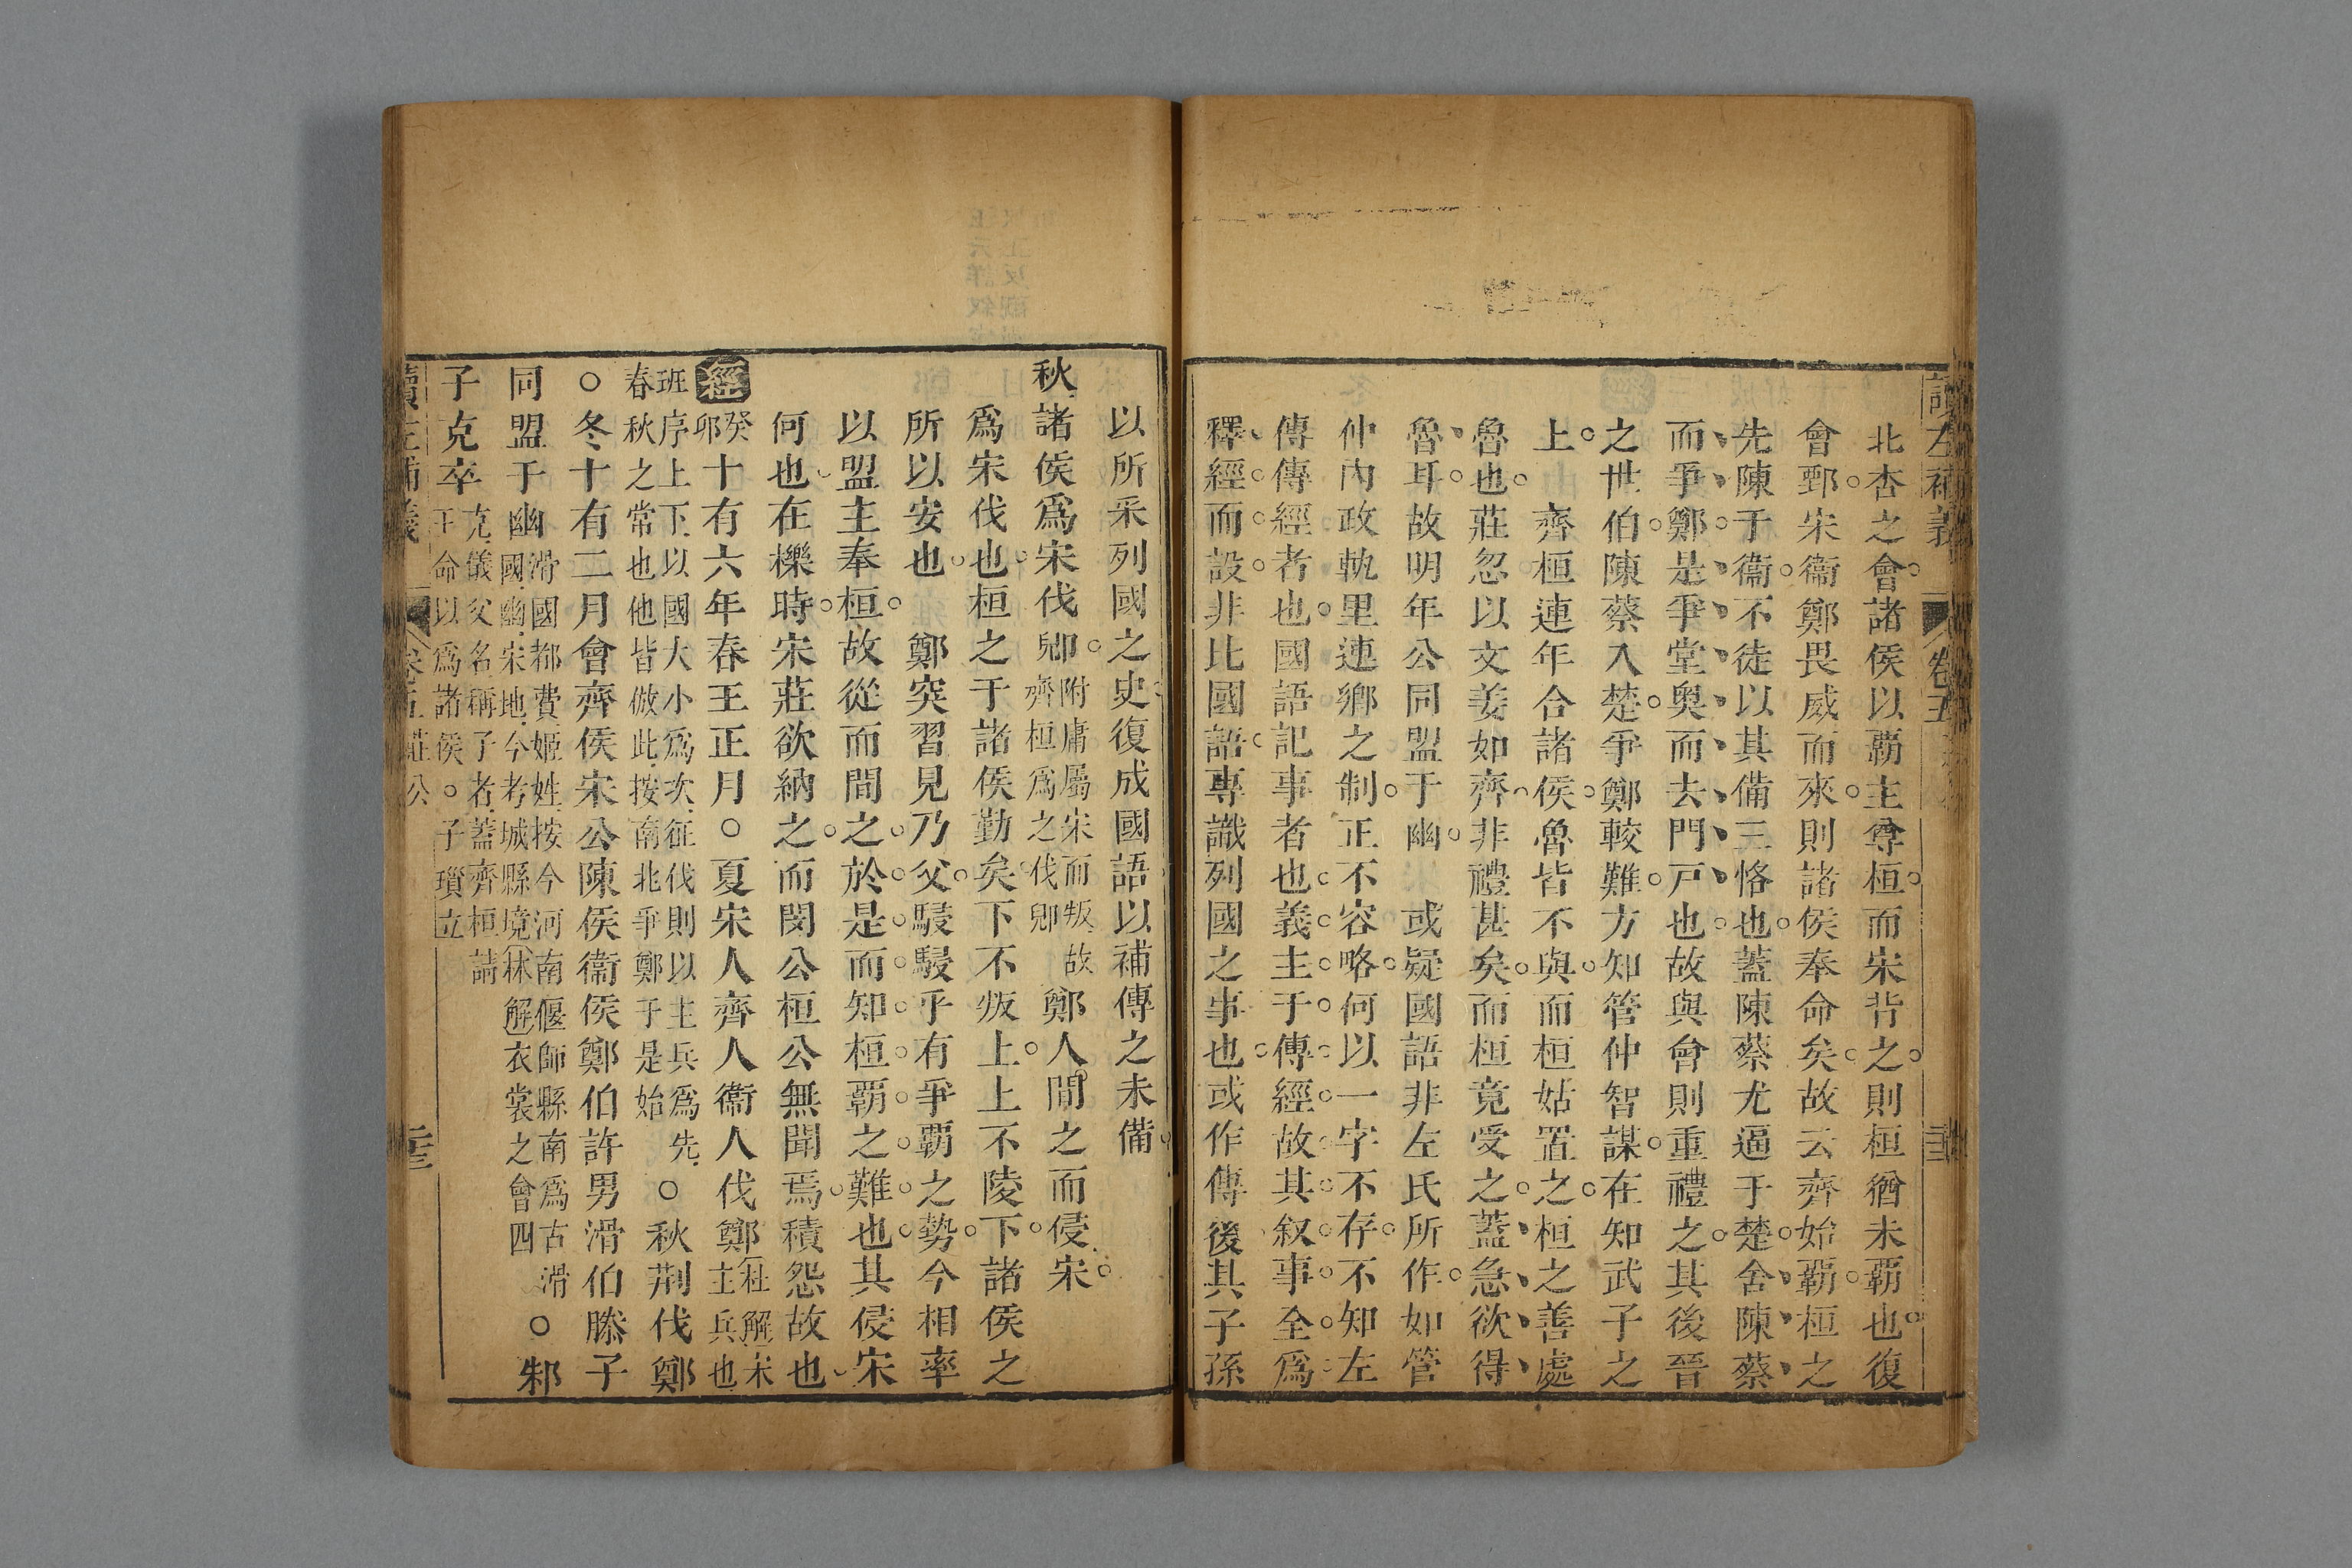 北杏之會諸侯以覇主尊桓而宋背之則桓猶未覇也復
會鄄宋衞鄭畏威而來則諸侯奉命矣故云齊始覇桓之
先陳于衞不徒以其備三恪也蓋陳蔡尤逼于楚舍陳蔡
而爭鄭是爭堂奥而去門戸也故與會則重禮之其後晉
之世伯陳蔡入楚爭鄭較難方知管仲智謀在知武子之
上 齊桓連年合諸侯魯皆不與而桓姑置之桓之善處
魯也莊忽以文姜如齊非禮甚矣而桓竟受之蓋急欲得
魯耳故明年公同盟于幽 或疑國語非左氏所作如管
仲內政軌里連鄉之制正不容略何以一字不存不知左
傳傳經者也國語記事者也義主于傳經故其叙事全爲
釋經而設非比國語專識列國之事也或作傳後其子孫
以所采列國之史復成國語以補傳之未備
秋諸侯爲宋伐郳附庸屬宋而叛故齊桓爲之伐郳鄭人間之而侵宋
爲宋伐也桓之于諸侯勤矣下不叛上上不陵下諸侯之
所以安也 鄭突習見乃父駸駸乎有爭覇之勢今相率
以盟主奉桓故從而間之於是而知桓覇之難也其侵宋
何也在櫟時宋莊欲納之而閔公桓公無聞焉積怨故也
經癸卯十有六年春王正月○夏宋人齊人衞人伐鄭杜解宋主兵也
班序上下以國大小爲次征伐則以主兵爲先春秋之常也他皆倣此按南北爭鄭于是始○秋荆伐鄭
○冬十有二月會齊侯宋公陳侯衞侯鄭伯許男滑伯滕子
同盟于幽滑國都費姬姓按今河南偃師縣南爲古滑國幽宋地今考城縣境林解衣裳之會四○邾
子克卒克儀父名稱子者蓋齊桓請王命以爲諸侯○子瑣立